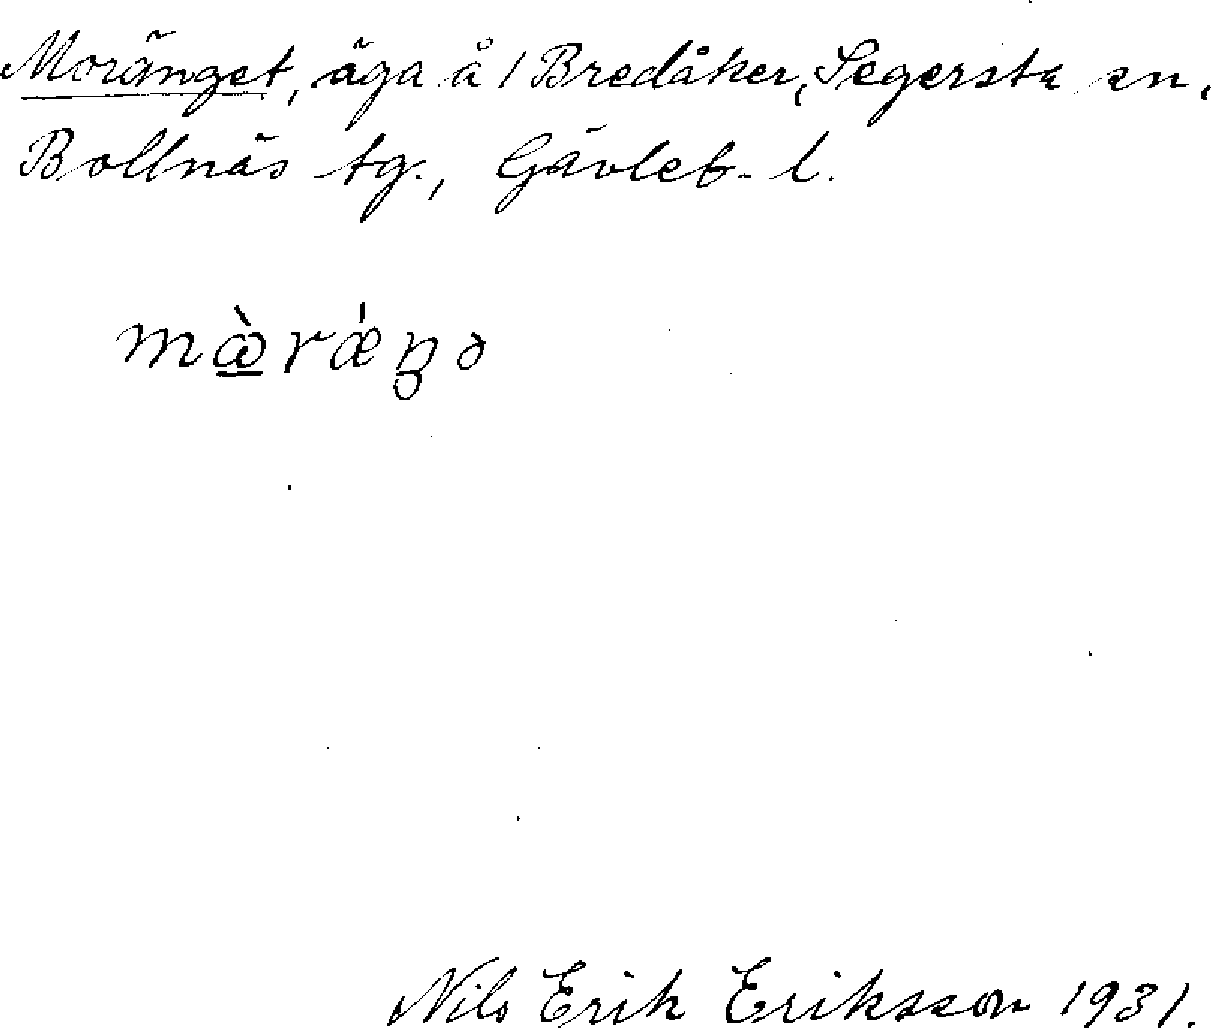 Moränget, äga å / Bredåker, Segersta sn,
Bollnäs tg., Gävleb. l.
mὼ̲rǽŋə
Nils Erik Eriksson 1931.